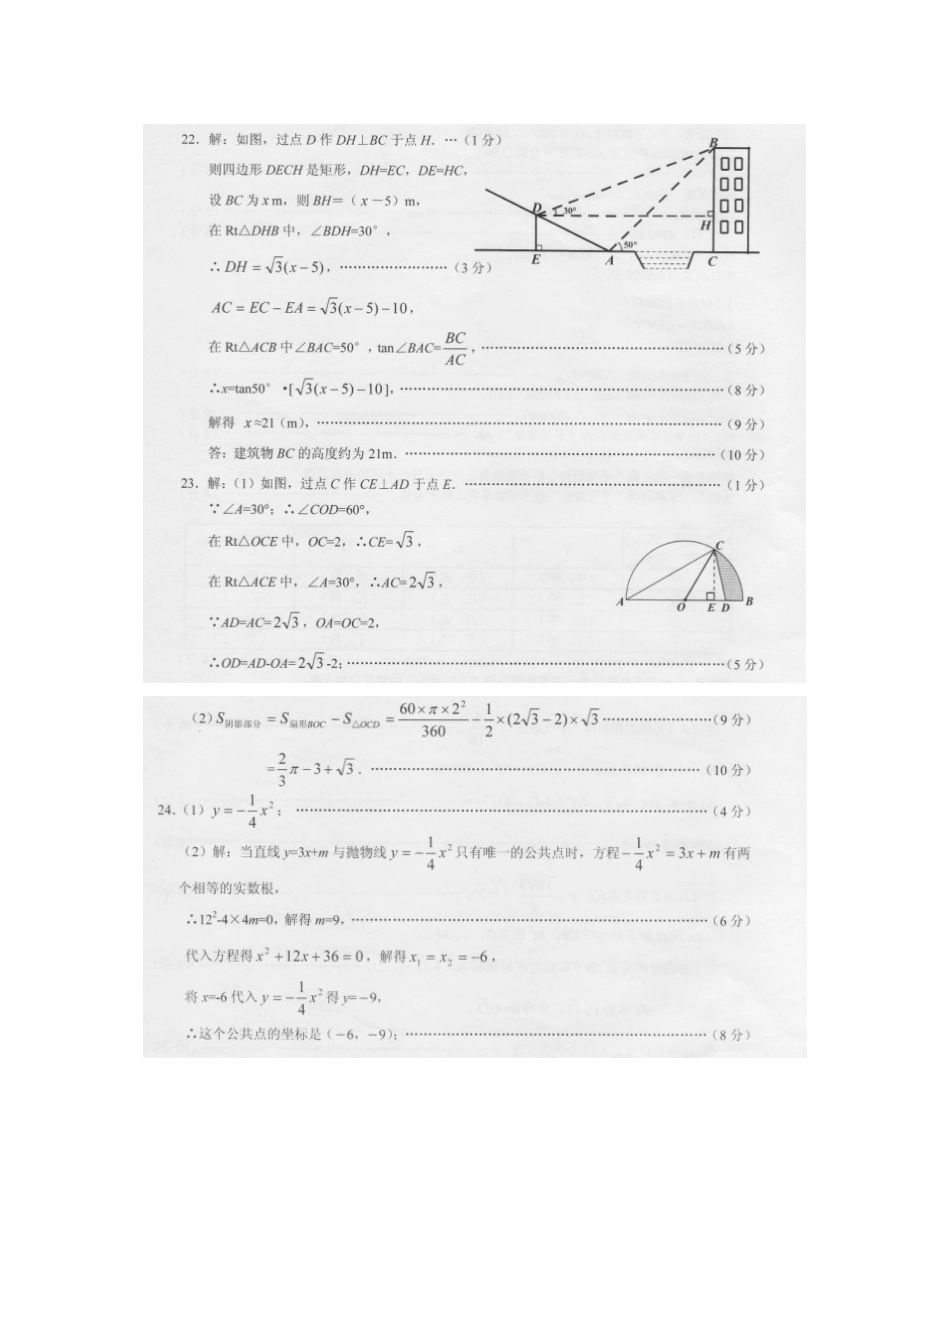 22．解：如图，过点 D 作 DH⊥BC 于点 H．…（1 分）
则四边形 DECH 是矩形，DH=EC，DE=HC，
设 BC 为 x m，则 BH=（ x －5）m，
在 Rt△DHB 中，∠BDH=30°，
∴ DH = √3(x－5)，……………………（3 分）
AC = EC － EA = √3(x－5)－10，
在 Rt△ACB 中∠BAC=50°，tan∠BAC= BC/AC ，……………………（5 分）
∴x=tan50° •[ √3(x－5)－10]，……………………（8 分）
解得 x≈21（m），……………………（9 分）
答：建筑物 BC 的高度约为 21m．……………………（10 分）
B
D
30°
H
50°
E
A
C
23．解：（1）如图，过点 C 作 CE⊥AD 于点 E．……………………（1 分）
∵∠A=30°；∴∠COD=60°，
在 Rt△OCE 中，OC=2，∴CE= √3，
在 Rt△ACE 中，∠A=30°，∴AC= 2√3，
∵AD=AC= 2√3，OA=OC=2，
∴OD=AD-OA= 2√3 -2；……………………（5 分）
C
A
O
E
D
B
（2）S阴影部分 = S扇形BOC － S△OCD = 60×π×2²/360 － 1/2×(2√3－2)×√3……………………（9 分）
= 2/3 π－3＋√3．……………………（10 分）
24．（1）y = － 1/4 x²；……………………（4 分）
（2）解：当直线 y=3x+m 与抛物线 y = － 1/4 x² 只有唯一的公共点时，方程－ 1/4 x² = 3x + m 有两
个相等的实数根，
∴12²-4×4m=0，解得 m=9，……………………（6 分）
代入方程得 x² +12x+36 = 0，解得 x₁ = x₂ = －6，
将 x=-6 代入 y = － 1/4 x² 得 y=－9，
∴这个公共点的坐标是（－6，－9）；……………………（8 分）